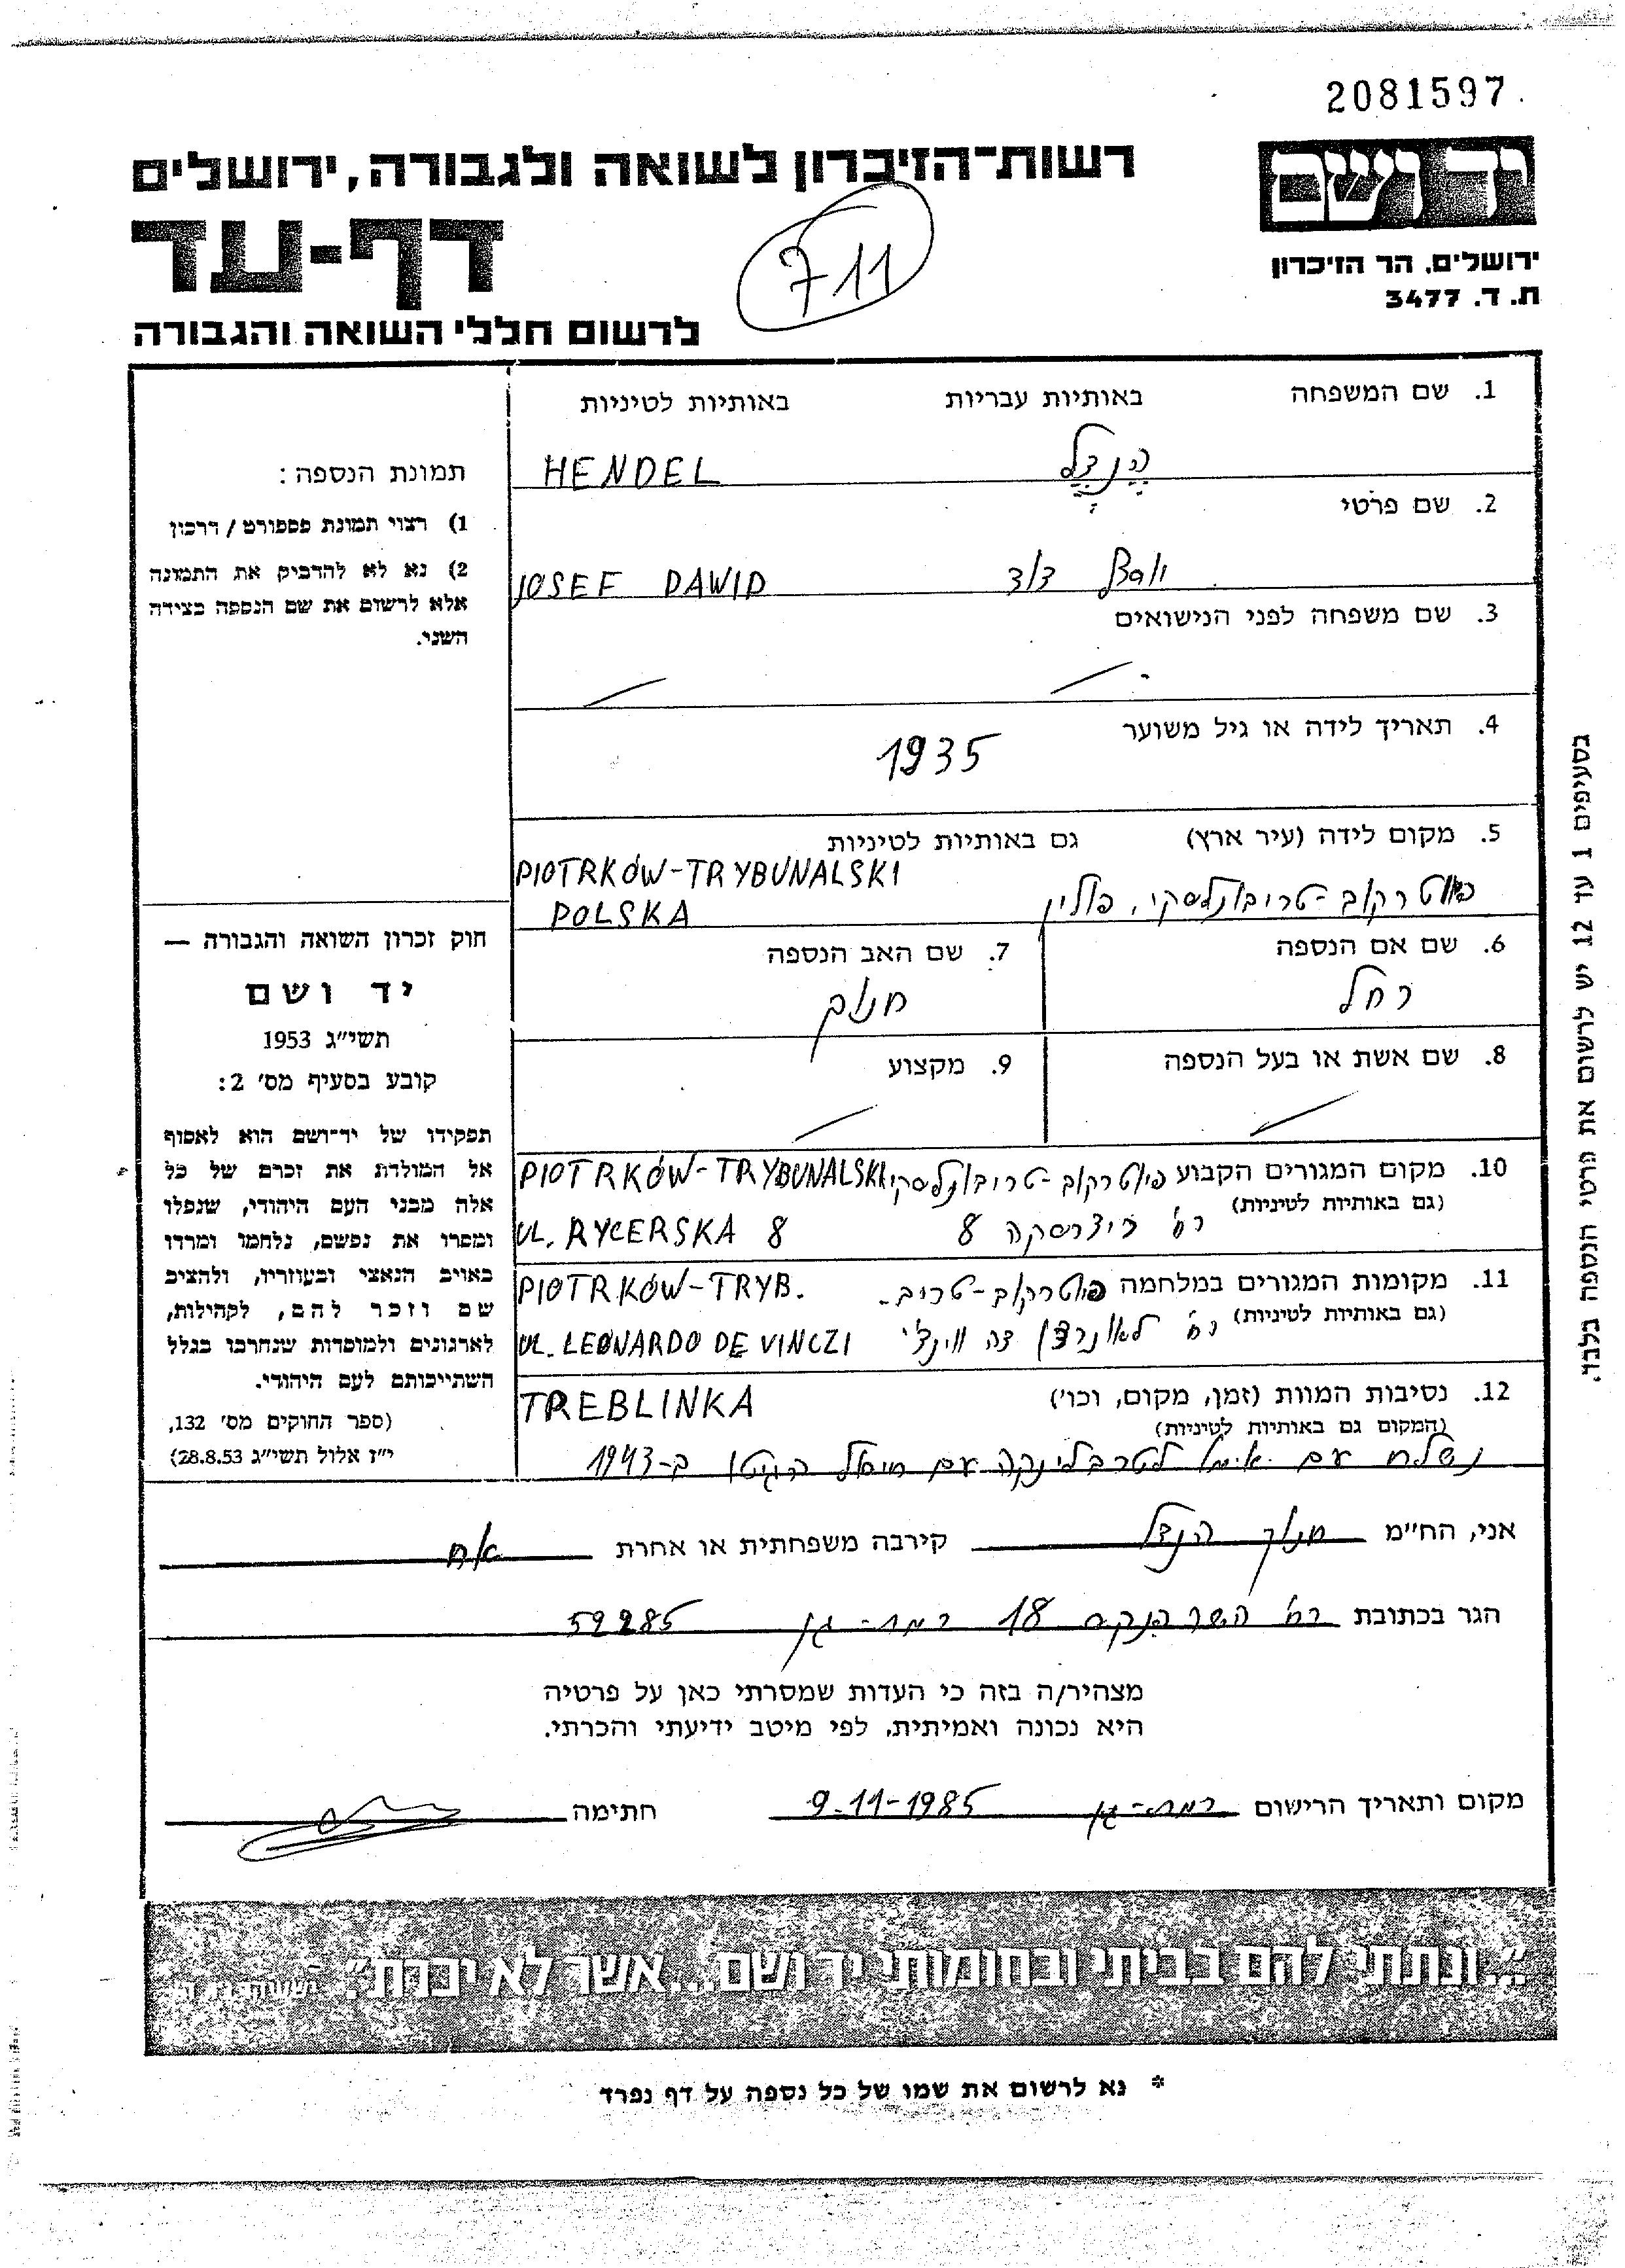 2081597
רשות־הזיכרון לשואה ולגבורה, ירושלים
יד ושם
דף-עד
711
ירושלים, הר הזיכרון
ת. ד. 3477
לרשום חללי השואה והגבורה
1. שם המשפחה באותיות עבריות באותיות לטיניות
הנדל HENDEL
2. שם פרטי
יוסף דוד JOSEF DAWID
3. שם משפחה לפני הנישואים
4. תאריך לידה או גיל משוער
1935
5. מקום לידה (עיר ארץ) גם באותיות לטיניות
PIOTRKÓW-TRYBUNALSKI
פיוטרקוב-טריבונלסקי, פולין POLSKA
6. שם אם הנספה
רחל
7. שם האב הנספה
חנוך
8. שם אשת או בעל הנספה
9. מקצוע
10. מקום המגורים הקבוע פיוטרקוב-טריבונלסקי PIOTRKÓW-TRYBUNALSKI
(גם באותיות לטיניות)
רח' ריצרסקה 8 UL. RYCERSKA 8
11. מקומות המגורים במלחמה פיוטרקוב-טריב. PIOTRKÓW-TRYB.
(גם באותיות לטיניות)
רח' לאונרדו דה ווינצ'י UL. LEONARDO DE VINCZI
12. נסיבות המוות (זמן, מקום, וכו') TREBLINKA
(המקום גם באותיות לטיניות)
נשלח עם אימא לטרבלינקה עם חיסול הגיטו ב-1943
תמונת הנספה:
1) רצוי תמונת פספורט / דרכון
2) נא לא להדביק את התמונה
אלא לרשום את שם הנספה בצידה
השני.
חוק זכרון השואה והגבורה —
יד ושם
תשי״ג 1953
קובע בסעיף מס׳ 2:
תפקידו של יד־ושם הוא לאסוף
אל המולדת את זכרם של כל
אלה מבני העם היהודי, שנפלו
ומסרו את נפשם, נלחמו ומרדו
באויב הנאצי ובעוזריו, ולהציב
שם וזכר להם, לקהילות,
לארגונים ולמוסדות שנחרבו בגלל
השתייכותם לעם היהודי.
(ספר החוקים מס׳ 132,
י״ז אלול תשי״ג 28.8.53)
בסעיפים 1 עד 12 יש לרשום את פרטי הנספה בלבד.
אני, הח״מ חנוך הנדל קירבה משפחתית או אחרת אח
הגר בכתובת רח' השר 18 רמת-גן 52285
מצהיר/ה בזה כי העדות שמסרתי כאן על פרטיה
היא נכונה ואמיתית, לפי מיטב ידיעתי והכרתי.
מקום ותאריך הרישום רמת-גן 9-11-1985 חתימה
״...ונתתי להם בביתי ובחומותי יד ושם...אשר לא יכרת״.
* נא לרשום את שמו של כל נספה על דף נפרד